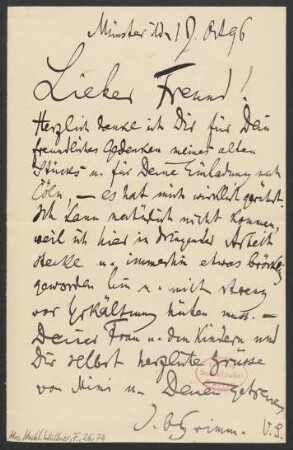 Münster d. 17. Okt 96
Lieber Freund!
Herzlich danke ich Dir für Dein
freundliches Gedenken meines alten
Stücks u. für Deine Einladung nach
Cöln, – es hat mich wirklich gerührt.
Ich kann natürlich nicht kommen,
weil ich hier in dringender Arbeit
stecke u. immerhin etwas bröcklig
geworden bin u. mich streng
vor Erkältung hüten muss. –
Deiner Frau u. den Kindern und
Dir selbst herzliche Grüsse
von Mimi u. Deinem getreuen
J. O. Grimm.